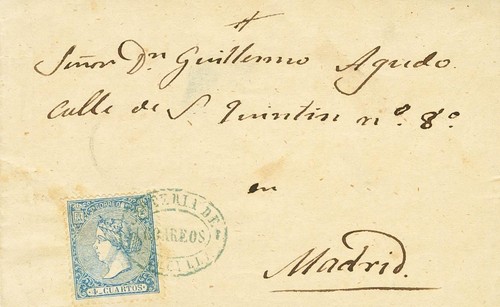 Señor Dn Guillermo Agudo.
Calle de S. Quintin nº. 8º.
en
Madrid.
CORREOS
4. CUARTOS
DE
CORREOS